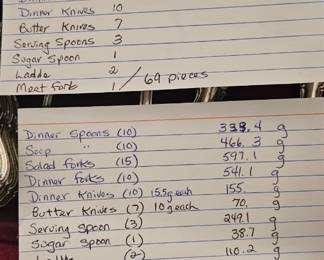 Dinner Knives 10
Butter Knives 7
Serving Spoons 3
Sugar Spoon 1
Ladle 2
Meat Fork 1 / 69 pieces
Dinner Spoons (10) 338.4 g
Soup " (10) 466.3 g
Salad forks (15) 597.1 g
Dinner forks (10) 541.1 g
Dinner Knives (10) 15.5g each 155. g
Butter Knives (7) 10g each 70. g
Serving Spoon (3) 249.1 g
Sugar Spoon (1) 38.7 g
(2) 110.2 g